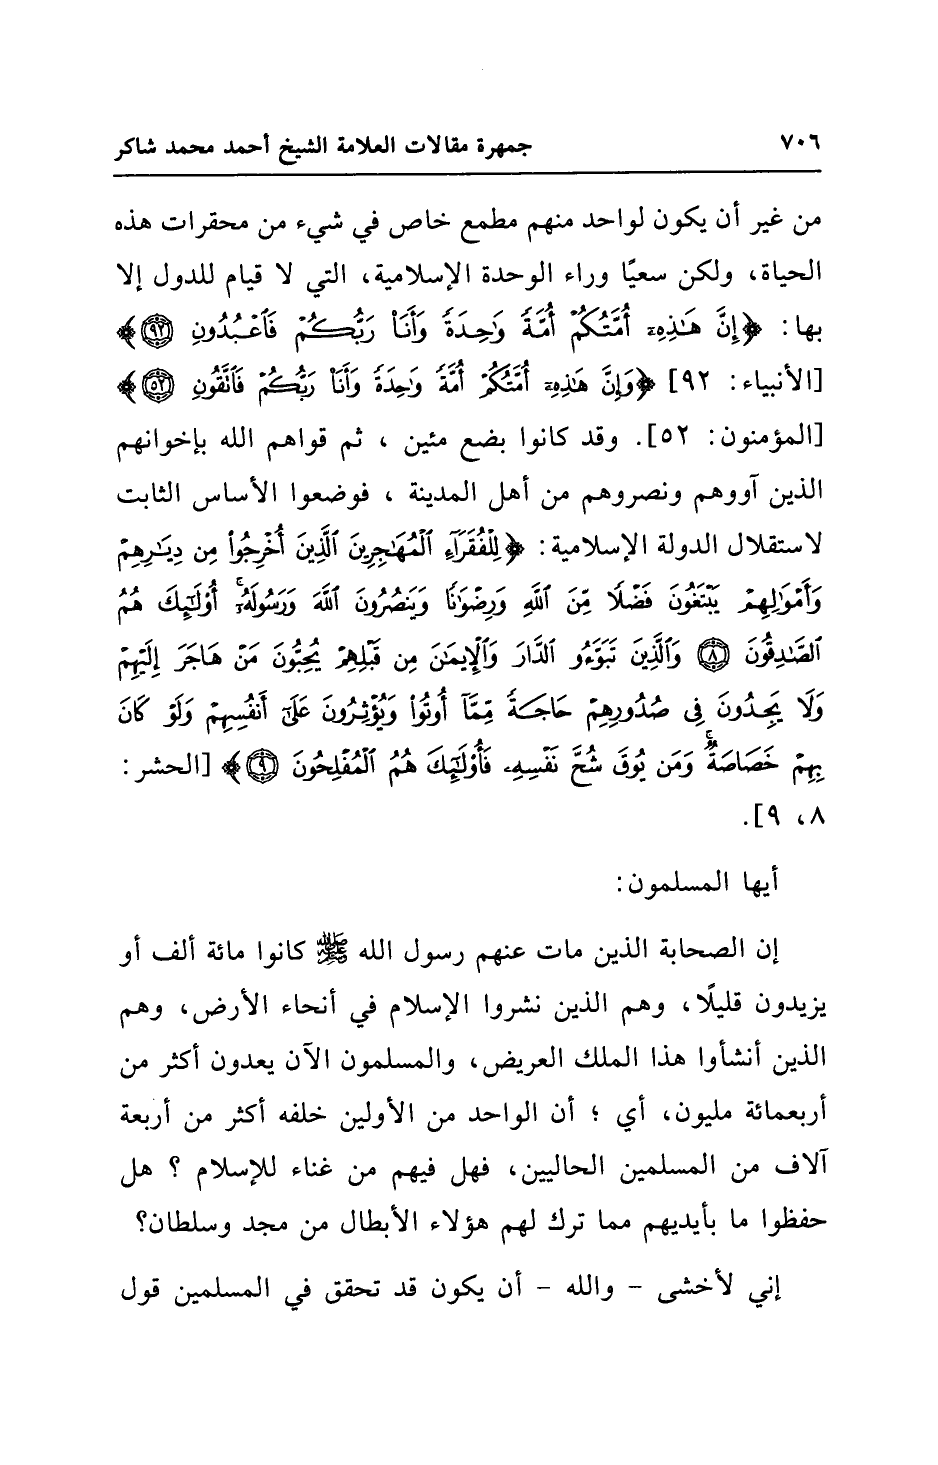 ٧٠٦ جمهرة مقالات العلامة الشيخ أحمد محمد شاكر
من غير أن يكون لواحد منهم مطمع خاص في شيء من محقرات هذه
الحياة، ولكن سعيًا وراء الوحدة الإسلامية، التي لا قيام للدول إلا
بها: ﴿إِنَّ هَٰذِهِۦٓ أُمَّتُكُمْ أُمَّةً وَٰحِدَةً وَأَنَا۠ رَبُّكُمْ فَٱعْبُدُونِ ﴿٩٢﴾﴾
[الأنبياء: ٩٢] ﴿وَإِنَّ هَٰذِهِۦٓ أُمَّتُكُمْ أُمَّةً وَٰحِدَةً وَأَنَا۠ رَبُّكُمْ فَٱتَّقُونِ ﴿٥٢﴾﴾
[المؤمنون: ٥٢]. وقد كانوا بضع مئين ، ثم قواهم الله بإخوانهم
الذين آووهم ونصروهم من أهل المدينة ، فوضعوا الأساس الثابت
لاستقلال الدولة الإسلامية: ﴿لِلْفُقَرَآءِ ٱلْمُهَٰجِرِينَ ٱلَّذِينَ أُخْرِجُوا۟ مِن دِيَٰرِهِمْ
وَأَمْوَٰلِهِمْ يَبْتَغُونَ فَضْلًا مِّنَ ٱللَّهِ وَرِضْوَٰنًا وَيَنصُرُونَ ٱللَّهَ وَرَسُولَهُۥٓ ۚ أُو۟لَٰٓئِكَ هُمُ
ٱلصَّٰدِقُونَ ﴿٨﴾ وَٱلَّذِينَ تَبَوَّءُو ٱلدَّارَ وَٱلْإِيمَٰنَ مِن قَبْلِهِمْ يُحِبُّونَ مَنْ هَاجَرَ إِلَيْهِمْ
وَلَا يَجِدُونَ فِى صُدُورِهِمْ حَاجَةً مِّمَّآ أُوتُوا۟ وَيُؤْثِرُونَ عَلَىٰٓ أَنفُسِهِمْ وَلَوْ كَانَ
بِهِمْ خَصَاصَةٌ ۚ وَمَن يُوقَ شُحَّ نَفْسِهِۦ فَأُو۟لَٰٓئِكَ هُمُ ٱلْمُفْلِحُونَ ﴿٩﴾﴾ [الحشر:
٨، ٩].
أيها المسلمون:
إن الصحابة الذين مات عنهم رسول الله ﷺ كانوا مائة ألف أو
يزيدون قليلًا، وهم الذين نشروا الإسلام في أنحاء الأرض، وهم
الذين أنشأوا هذا الملك العريض، والمسلمون الآن يعدون أكثر من
أربعمائة مليون، أي ؛ أن الواحد من الأولين خلفه أكثر من أربعة
آلاف من المسلمين الحاليين، فهل فيهم من غناء للإسلام ؟ هل
حفظوا ما بأيديهم مما ترك لهم هؤلاء الأبطال من مجد وسلطان؟
إني لأخشى - والله - أن يكون قد تحقق في المسلمين قول